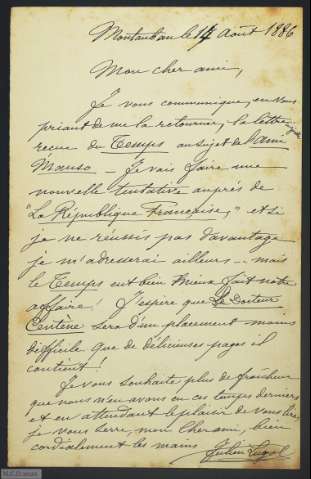 Montauban le 14 Août 1886
Mon cher ami,
Je vous communique, en vous
priant de me la retourner, la lettre
reçue du Temps au sujet de l'ami
Manso – Je vais faire une
nouvelle tentative auprès de
"La République Française," et si
je ne réussis pas davantage
je m'adresserai ailleurs – mais
le Temps eut bien mieux fait notre
affaire! J'espère que Le Docteur
Centène sera d'un placement moins
difficile que de délicieuses pages il
contient!
Je vous souhaite plus de fraîcheur
que nous n'en avons en ces temps derniers
et en attendant le plaisir de vous lire,
je vous serre, mon cher ami, bien
cordialement les mains
Julien Lugol